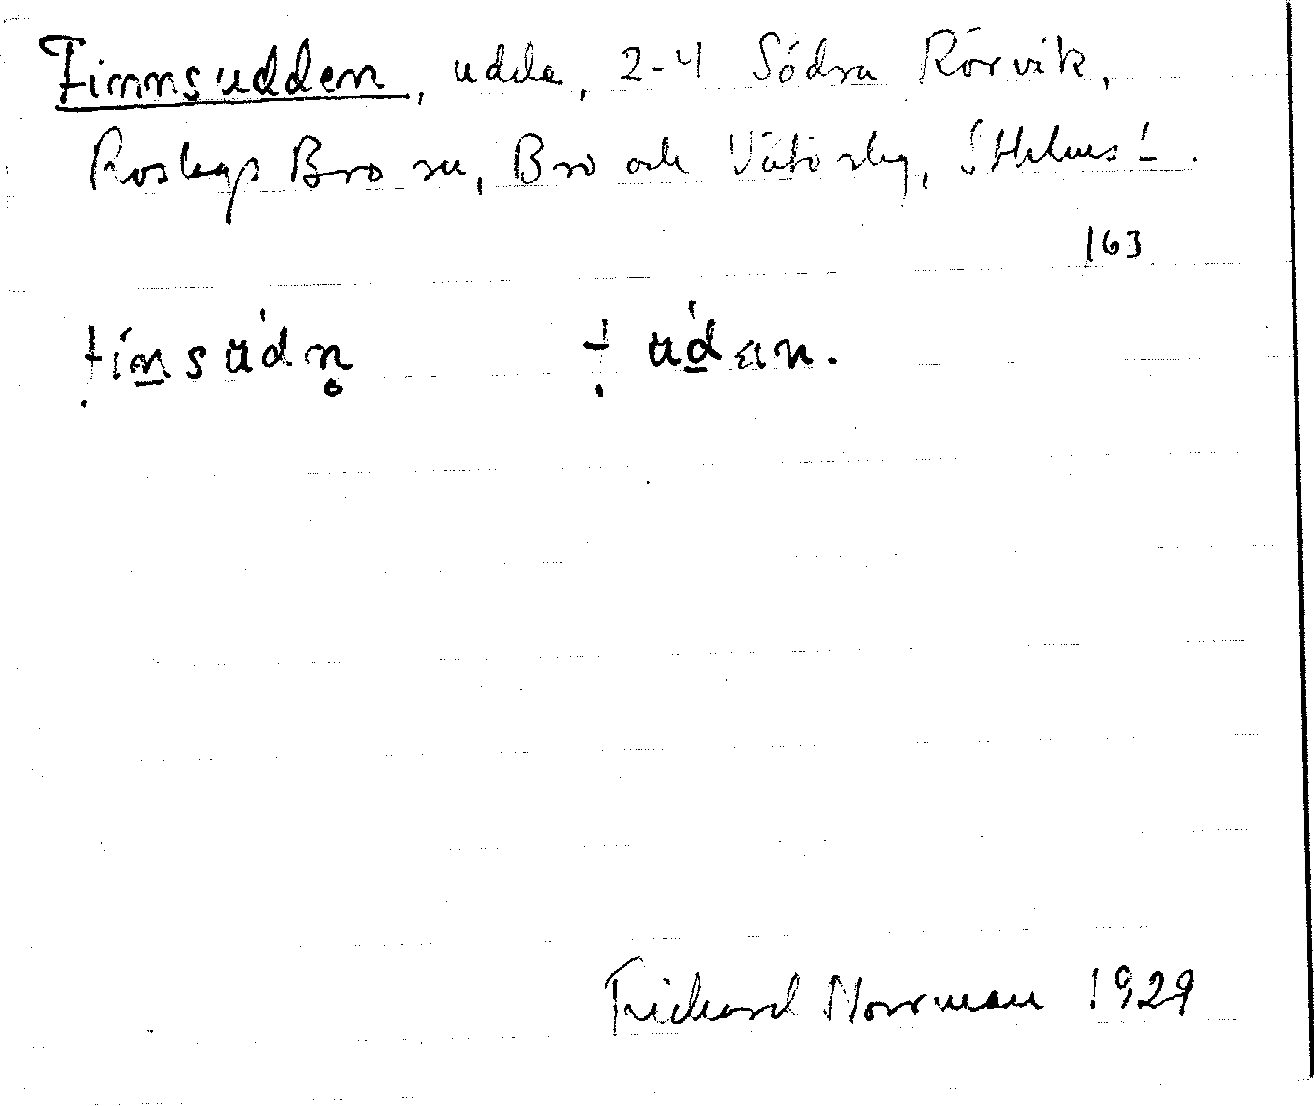 Finnsudden, udde, 2-4 Södra Rörvik,
Roslags Bro sn, Bro och Vätö slg, Sthlms l.
163
finsùdn̥ f ùdan.
Richard Norrman 1929